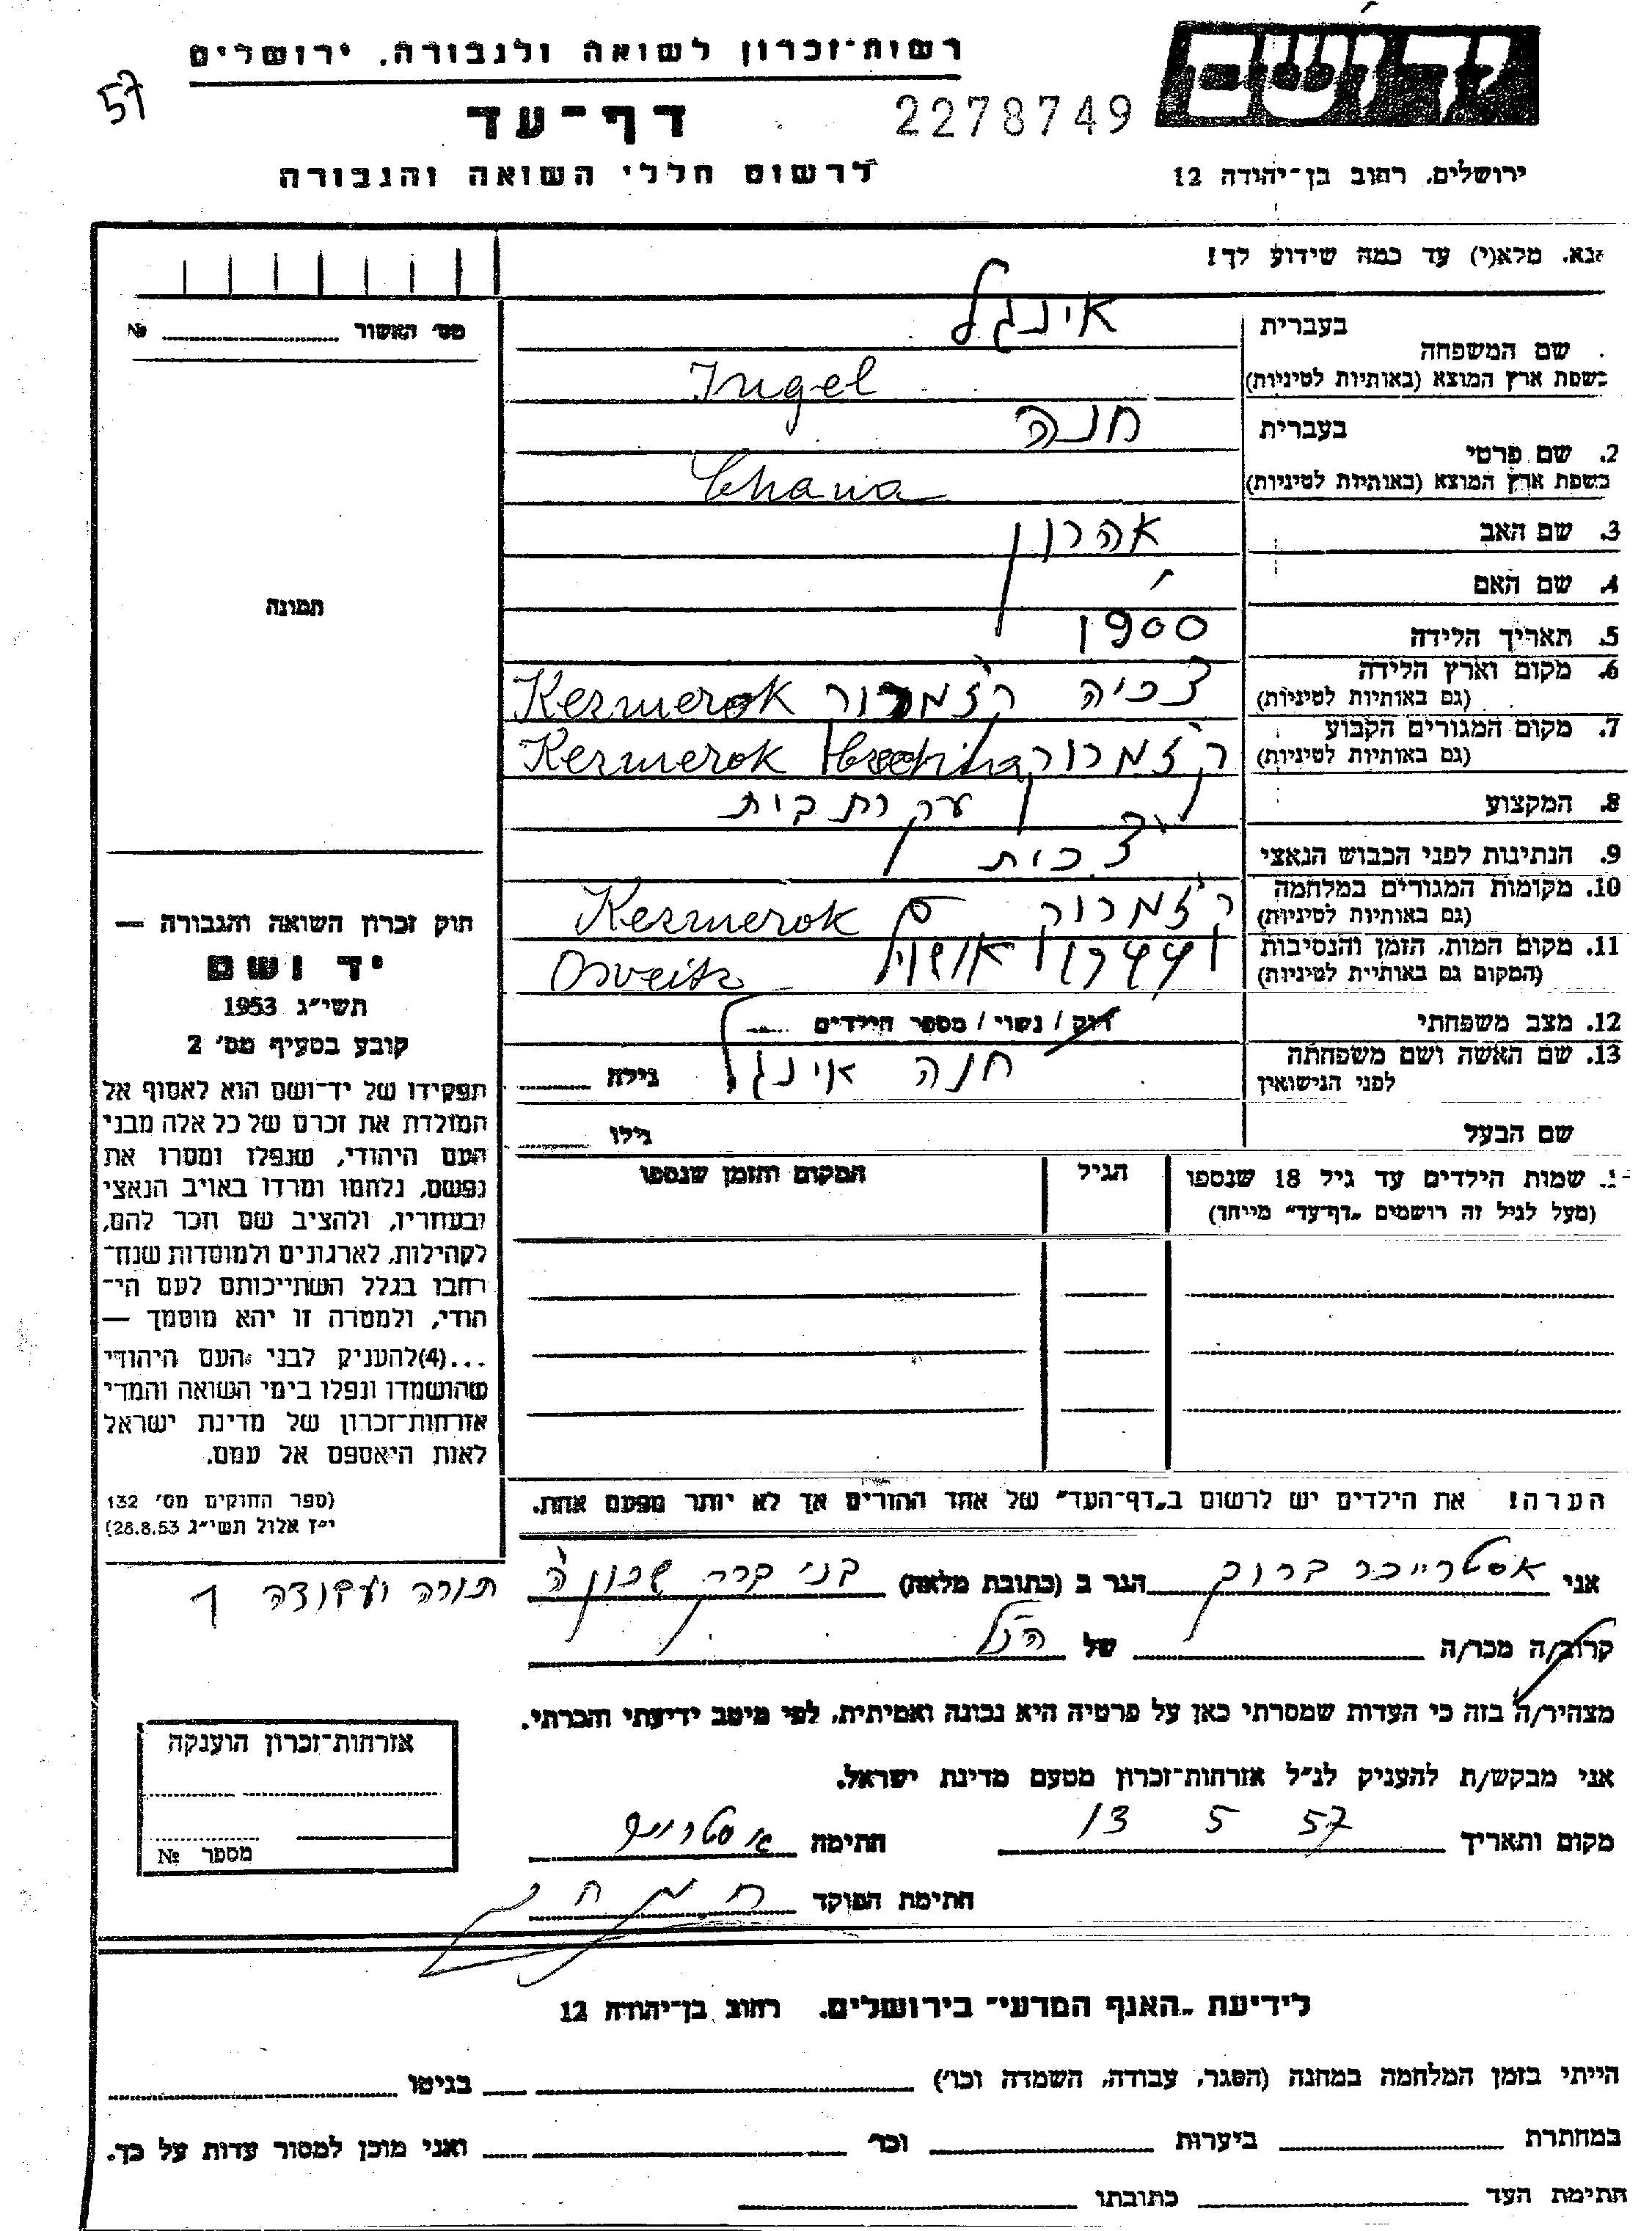 רשות־זכרון לשואה ולגבורה, ירושלים
יד ושם
57
דף־עד
2278749
לרשום חללי השואה והגבורה
ירושלים, רחוב בן־יהודה 12
אנא, מלא(י) עד כמה שידוע לך!
מס׳ האשור № 
בעברית אינגל
שם המשפחה
בשפת ארץ המוצא (באותיות לטיניות) Ingel
בעברית חנה
2. שם פרטי
בשפת ארץ המוצא (באותיות לטיניות) Chana
3. שם האב אהרון
4. שם האם
5. תאריך הלידה 1900
6. מקום וארץ הלידה צ׳כיה Kezmerok
(גם באותיות לטיניות)
7. מקום המגורים הקבוע קז׳מרוק Kezmerok
(גם באותיות לטיניות)
8. המקצוע עקרת בית
9. הנתינות לפני הכבוש הנאצי צ׳כית
10. מקומות המגורים במלחמה קז׳מרוק Kezmerok
(גם באותיות לטיניות)
11. מקום המות, הזמן והנסיבות 1944 Osveits
(המקום גם באותיית לטיניות)
12. מצב משפחתי רוק / נשוי / מספר הילדים
13. שם האשה ושם משפחתה חנה אינגל גילה
לפני הנישואין
שם הבעל גילו
שמות הילדים עד גיל 18 שנספו הגיל המקום והזמן שנספו
(מעל לגיל זה רושמים „דף־עד” מייחד)
הערה! את הילדים יש לרשום ב„דף־העד” של אחד ההורים אך לא יותר מפעם אחת.
תמונה
חוק זכרון השואה והגבורה —
יד ושם
תשי״ג 1953
קובע בסעיף מס׳ 2
תפקידו של יד־ושם הוא לאסוף אל
המולדת את זכרם של כל אלה מבני
העם היהודי, שנפלו ומסרו את
נפשם, נלחמו ומרדו באויב הנאצי
ובעוזריו, ולהציב שם וזכר להם,
לקהילות, לארגונים ולמוסדות שנח־
רחבו בגלל השתייכותם לעם הי־
הודי, ולמטרה זו יהא מוסמך —
...(4)להעניק לבני העם היהודי
שהושמדו ונפלו בימי השואה והמרי
אזרחות־זכרון של מדינת ישראל
לאות היאספם אל עמם.
(ספר החוקים מס׳ 132
י״ז אלול תשי״ג 28.8.53)
אני אסטרייכר ברוך הגר ב (כתובת מלאה) בני ברק שכון ה
תורה ועבודה 1
קרוב/ה מכר/ה של הנ״ל
מצהיר/ה בזה כי העדות שמסרתי כאן על פרטיה היא נכונה ואמיתית, לפי מיטב ידיעתי והכרתי.
אני מבקש/ת להעניק לנ״ל אזרחות־זכרון מטעם מדינת ישראל.
מקום ותאריך 13 5 57 חתימה
חתימת הפוקד
אזרחות־זכרון הוענקה
מספר №
לידיעת „האנף המדעי” בירושלים. רחוב בן־יהודה 12
הייתי בזמן המלחמה במחנה (הסגר, עבודה, השמדה וכו׳) בגיטו
במחתרת ביערות וכו׳ ואני מוכן למסור עדות על כך.
חתימת העד כתובתו